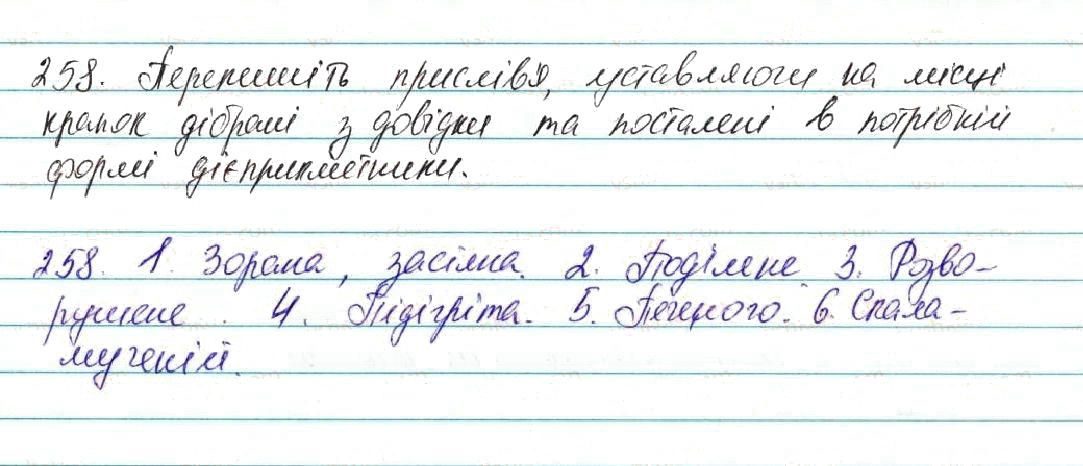 258. Перепишіть прислів'я, уставляючи на місці
крапок дібрані з довідки та поставлені в потрібній
формі дієприкметники.
258. 1. Зорана, засіяна. 2. Поділене 3. Розво-
рушене. 4. Підігріта. 5. Печеного. 6. Скала-
мученій.